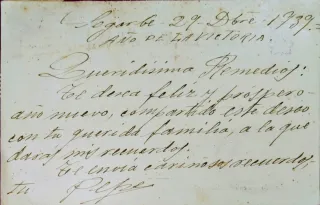 Segorbe 29 Dbre 1939
AÑO DE LA VICTORIA.
Queridisima Remedios:
Te desea feliz y próspero
año nuevo, compartido este deseo
con tu querida familia, a la que
daras mis recuerdos.
Te envia cariñosos recuerdos
tu Pepe